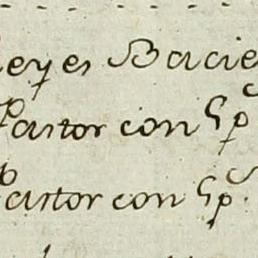 Reyes Bacie
Pastor con Sp.
Pastor con Sp.